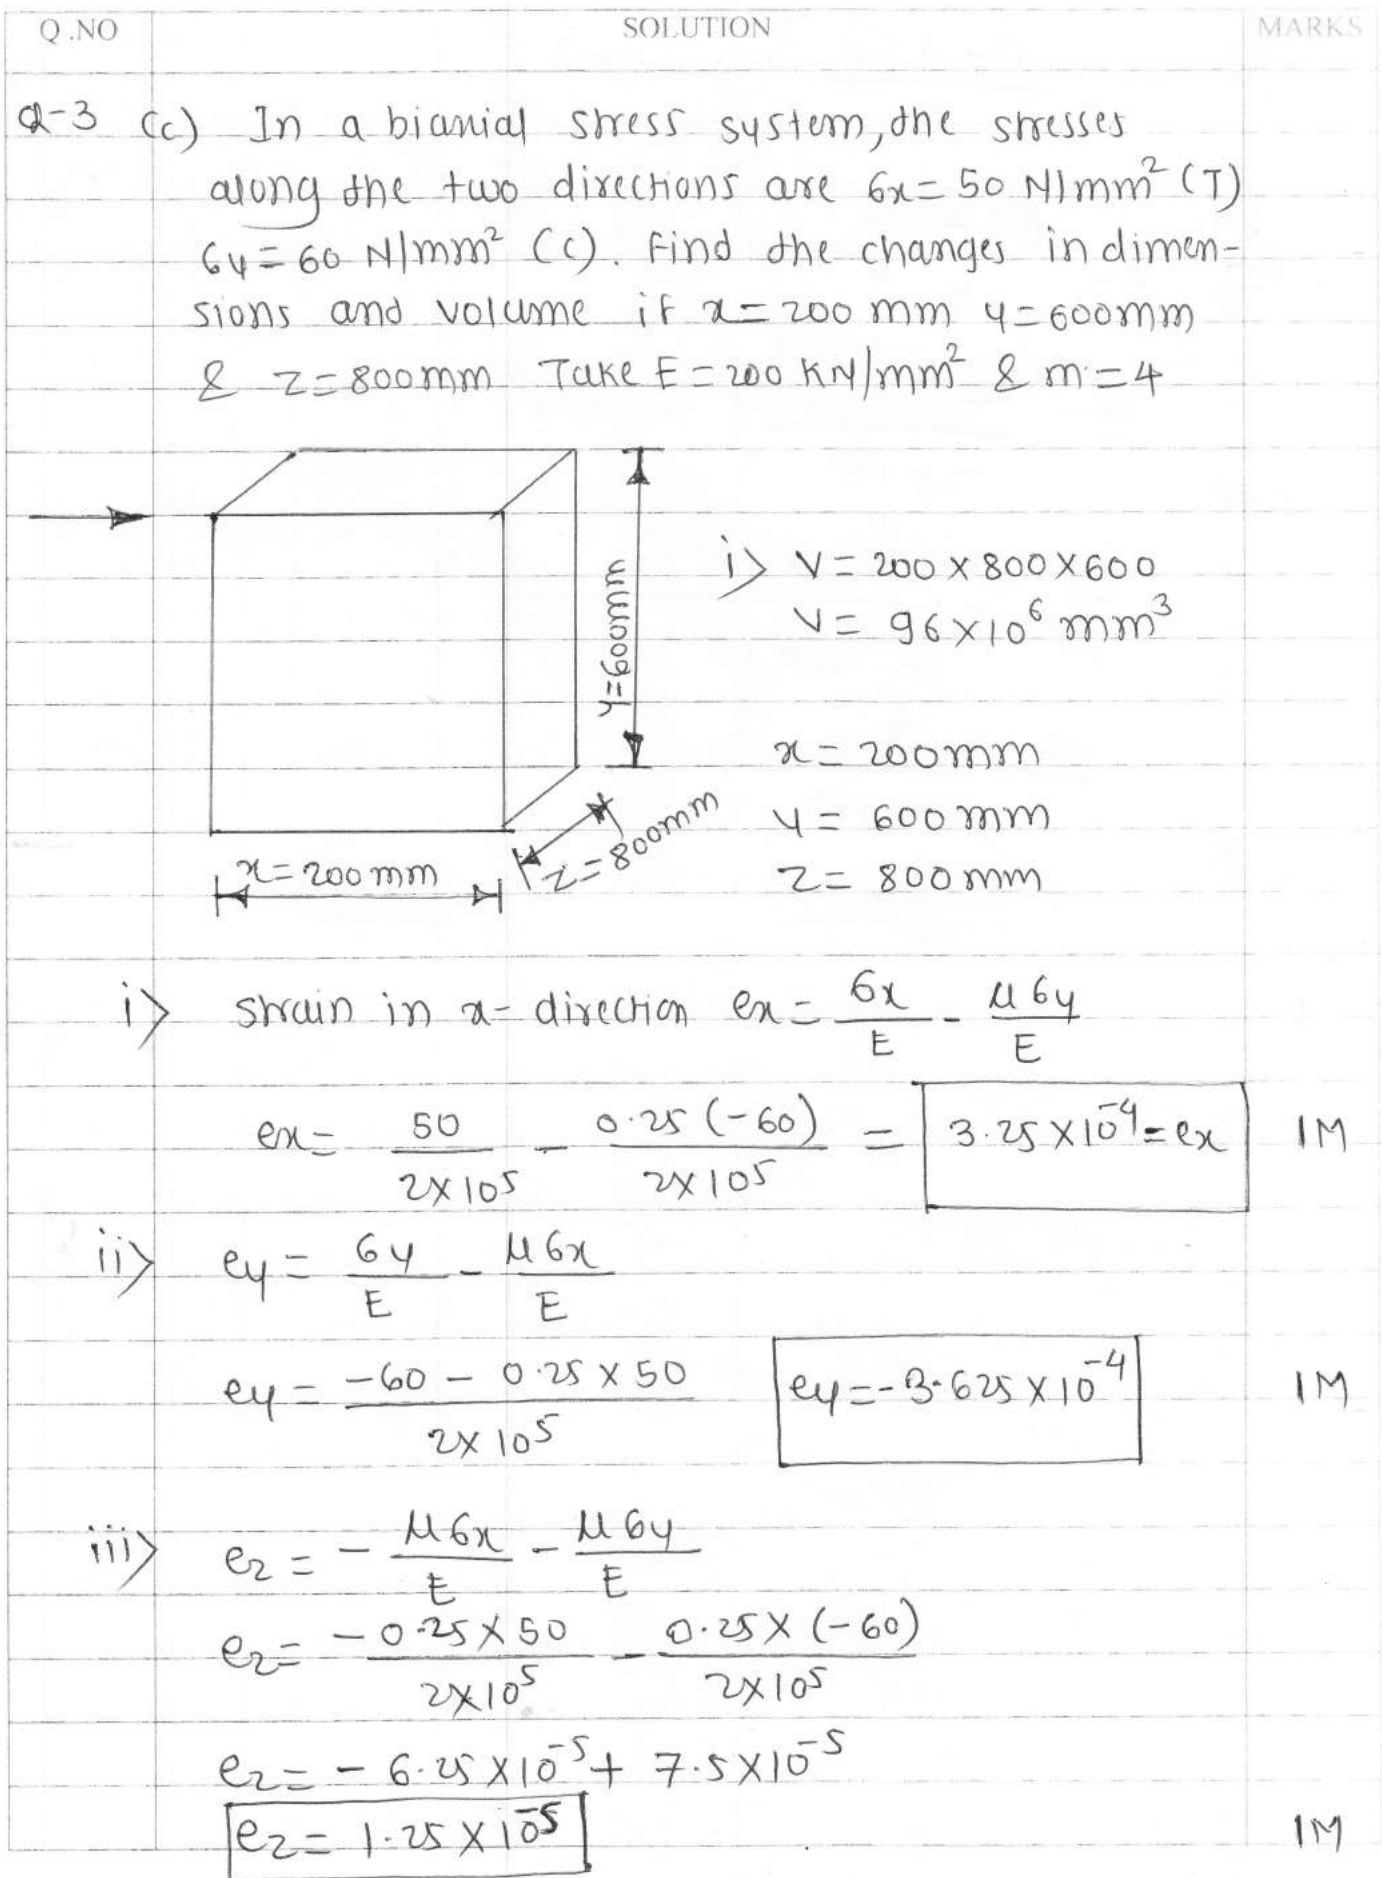 Q.NO SOLUTION MARKS
Q-3 (c) In a biaxial stress system, the stresses
along the two directions are σx = 50 N/mm² (T)
σy = 60 N/mm² (C). Find the changes in dimen-
sions and volume if x = 200 mm y = 600mm
& z = 800mm Take E = 200 KN/mm² & m = 4
y=600mm
i> V = 200 × 800 × 600
V = 96×10⁶ mm³
x = 200mm
y = 600 mm
z = 800 mm
x = 200 mm
z = 800mm
i> strain in x- direction ex = σx/E - μσy/E
ex = 50/2×10⁵ - 0.25 (-60)/2×10⁵ = 3.25 ×10⁻⁴ = ex 1M
ii> ey = σy/E - μσx/E
ey = -60 - 0.25 × 50/2×10⁵ ey = -3.625 × 10⁻⁴ 1M
iii> ez = - μσx/E - μσy/E
ez = -0.25 × 50/2×10⁵ - 0.25 × (-60)/2×10⁵
ez = - 6.25 ×10⁻⁵ + 7.5×10⁻⁵
ez = 1.25 × 10⁻⁵ 1M